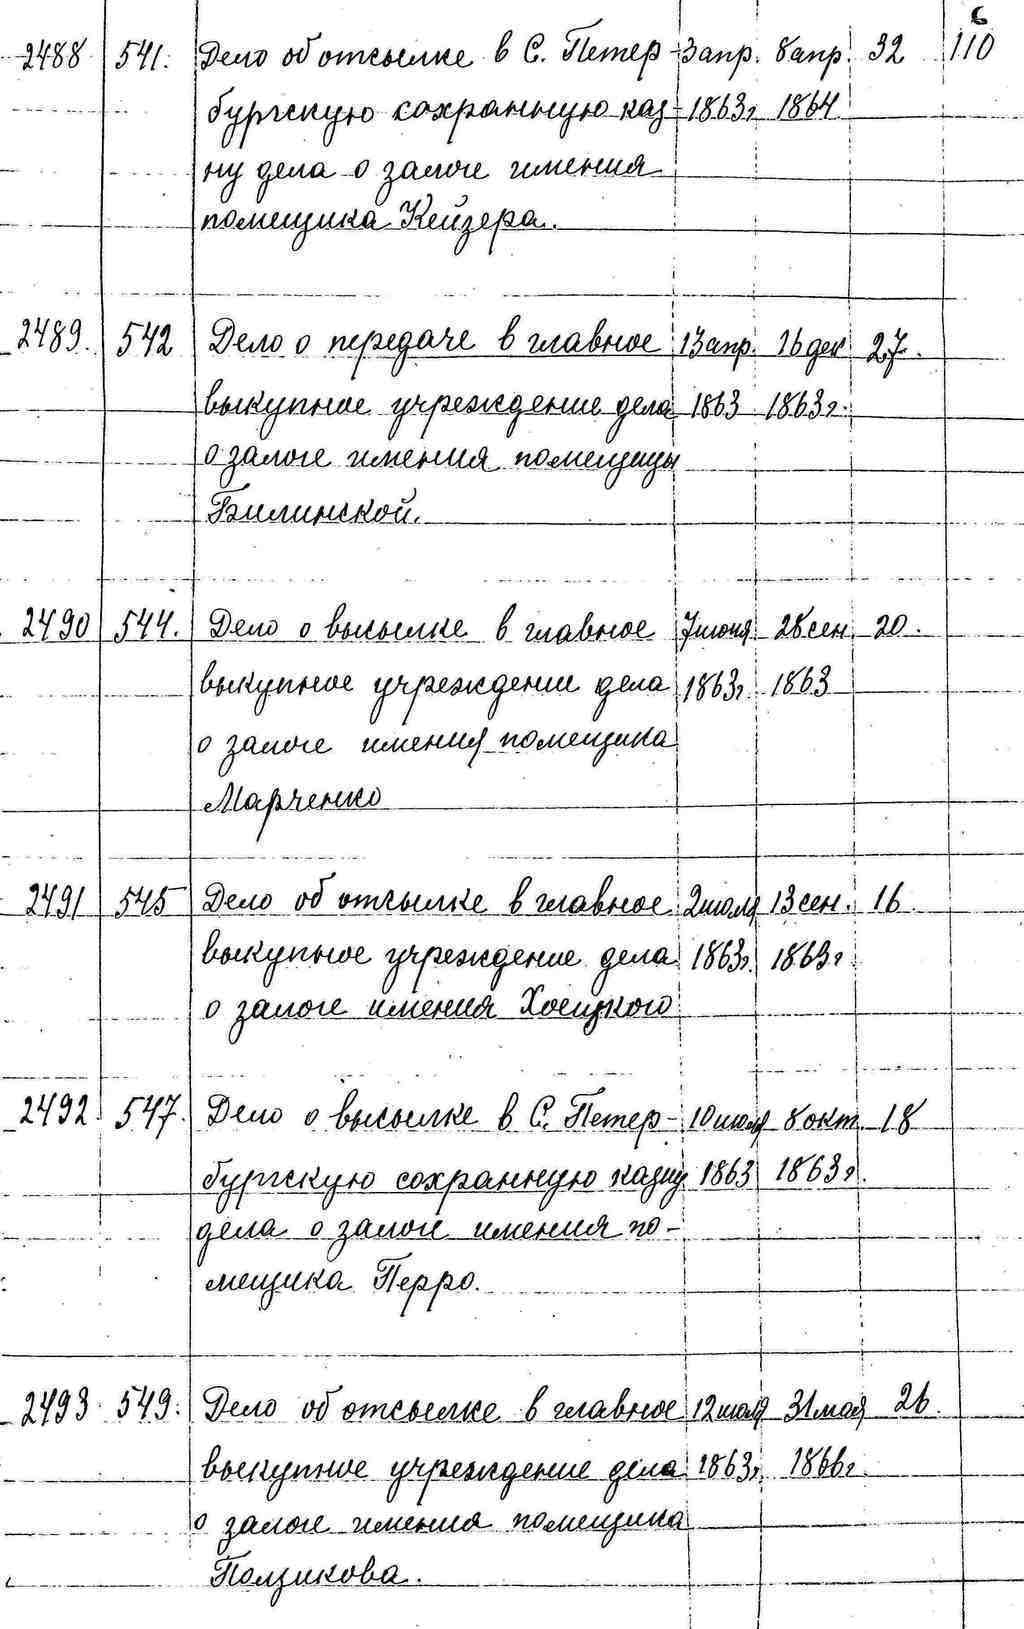 6
2488 541. Дело об отсылке в С. Петер- 3 апр. 8 апр. 32 110
бургскую сохранную каз- 1863г 1864
ну дела о залоге имения
помещика Кейзера.
2489. 542 Дело о передаче в главное 13 апр. 16 дек 27.
выкупное учреждение дела 1863 1863г.
о залоге имения помещицы
Билинской.
2490 544. Дело о высылке в главное 7 июня 28 сен. 20.
выкупное учреждении дела 1863г. 1863
о залоге имения помещика
Марченко
2491 545 Дело об отсылке в главное 2 июля 13 сен. 16.
выкупное учреждение дела 1863г. 1863г
о залоге имения Хоецкого
2492. 547. Дело о высылке в С. Петер- 10 июля 8 окт. 18
бургскую сохранную казну 1863 1863г.
дела о залоге имения по-
мещика Перро.
2493. 549. Дело об отсылке в главное 12 июля 31 мая 26.
выкупное учреждение дела 1863г. 1866г.
о залоге имения помещика
Ползикова.